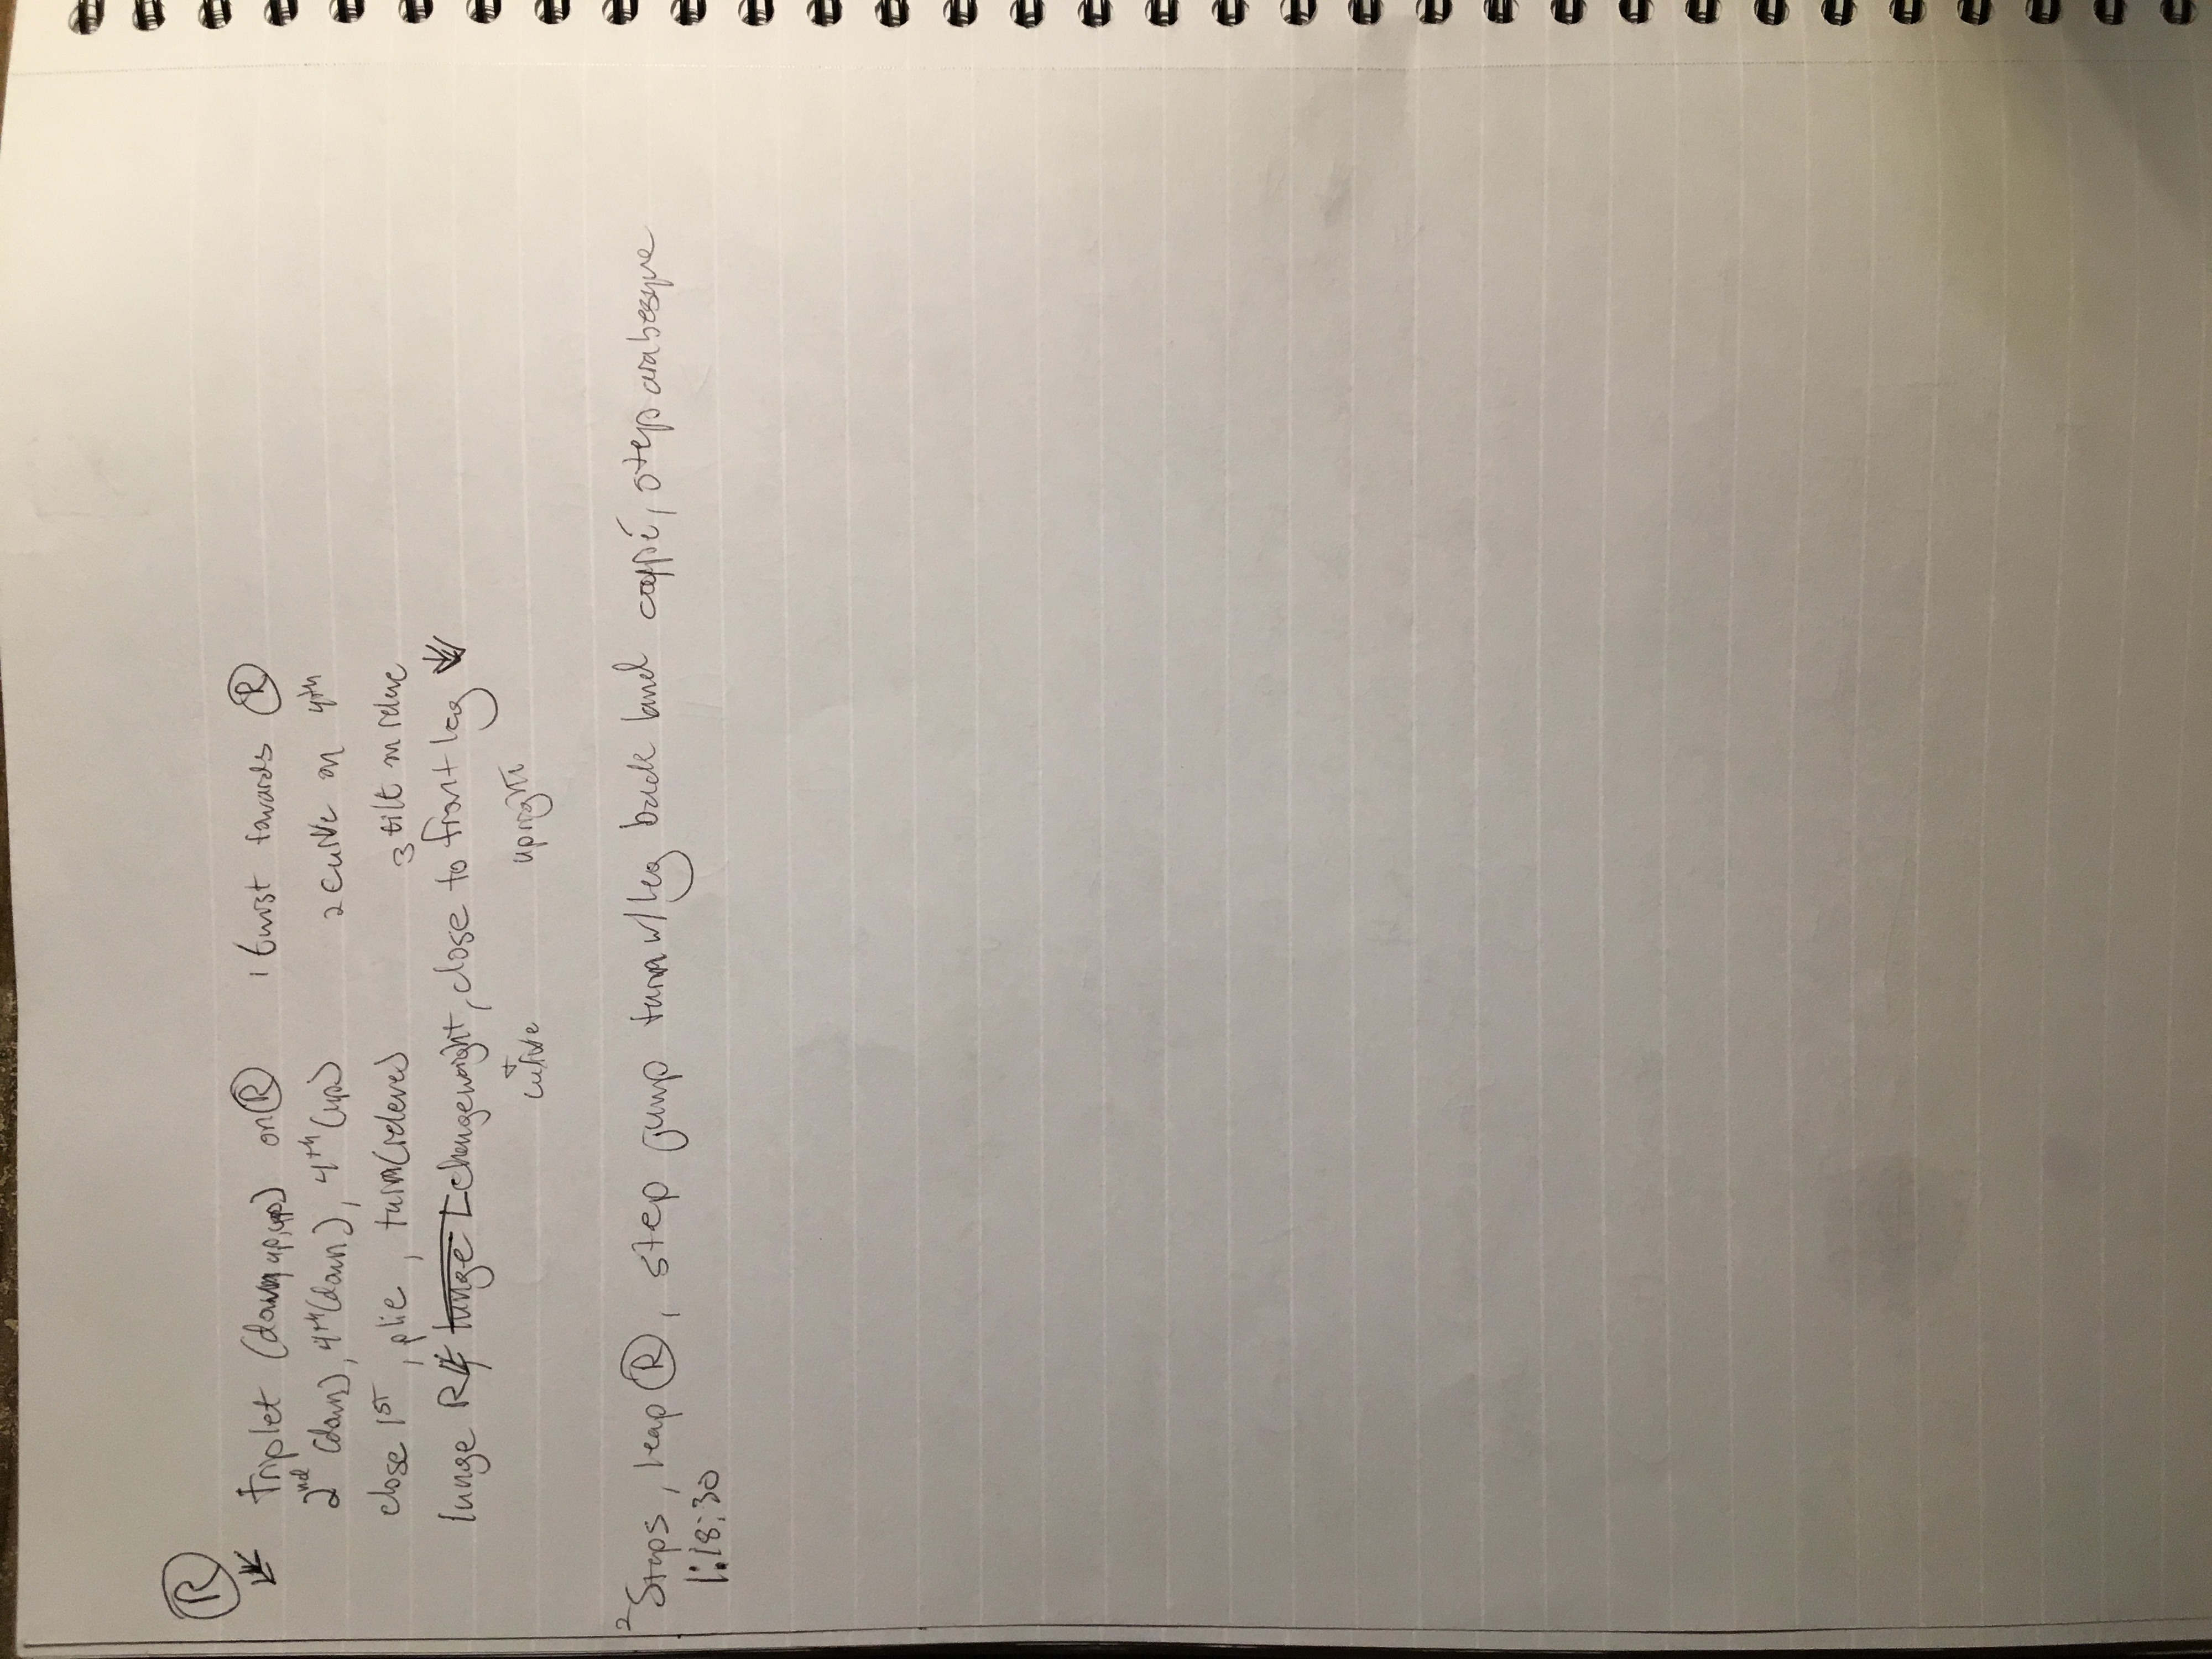 Ⓡ
triplet (down, up, up) on Ⓡ 1 twist towards Ⓡ
2nd (down), 4th (down), 4th (up) 2 curve on 4th
close 1st, plie, turn (releve) 3 tilt on releve
lunge R change weight, close to front leg
curve upright
2 Steps, leap Ⓡ, step jump turn w/ leg back land coupé, step arabesque
1:18:30